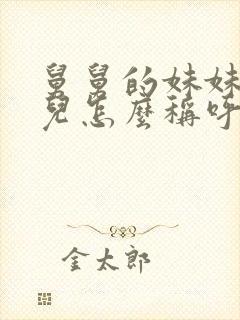 舅舅的妹妹
兒怎麼稱呼
金太郎